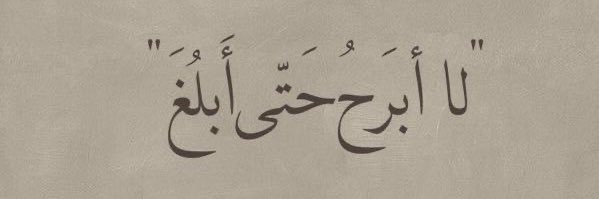 "لا أبَرحُ حَتّى أَبلُغَ"